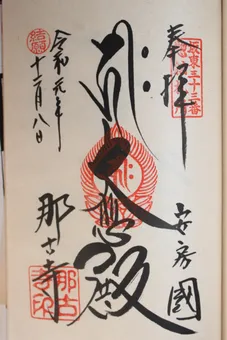 奉拝
坂東三十三番
安房國
大悲殿
令和元年
十二月八日
結願
那古寺
那古寺印